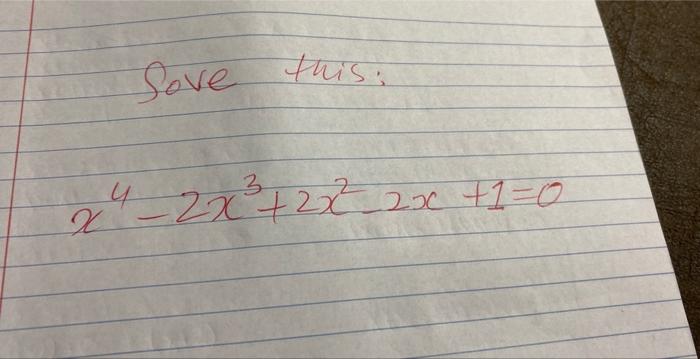 Sove this:
x⁴ - 2x³ + 2x² - 2x + 1 = 0